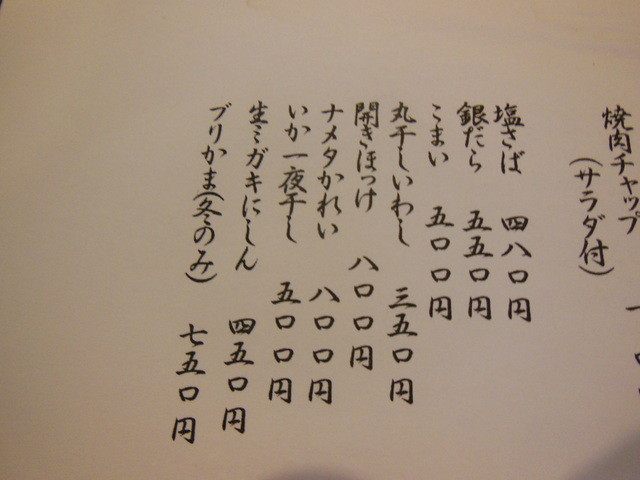 焼肉チャップ
(サラダ付)
塩さば 四八〇円
銀だら 五五〇円
こまい 五〇〇円
丸干しいわし 三五〇円
開きほっけ 八〇〇円
ナメタかれい 八〇〇円
いか一夜干し 五〇〇円
生ミガキにしん 四五〇円
ブリかま(冬のみ) 七五〇円